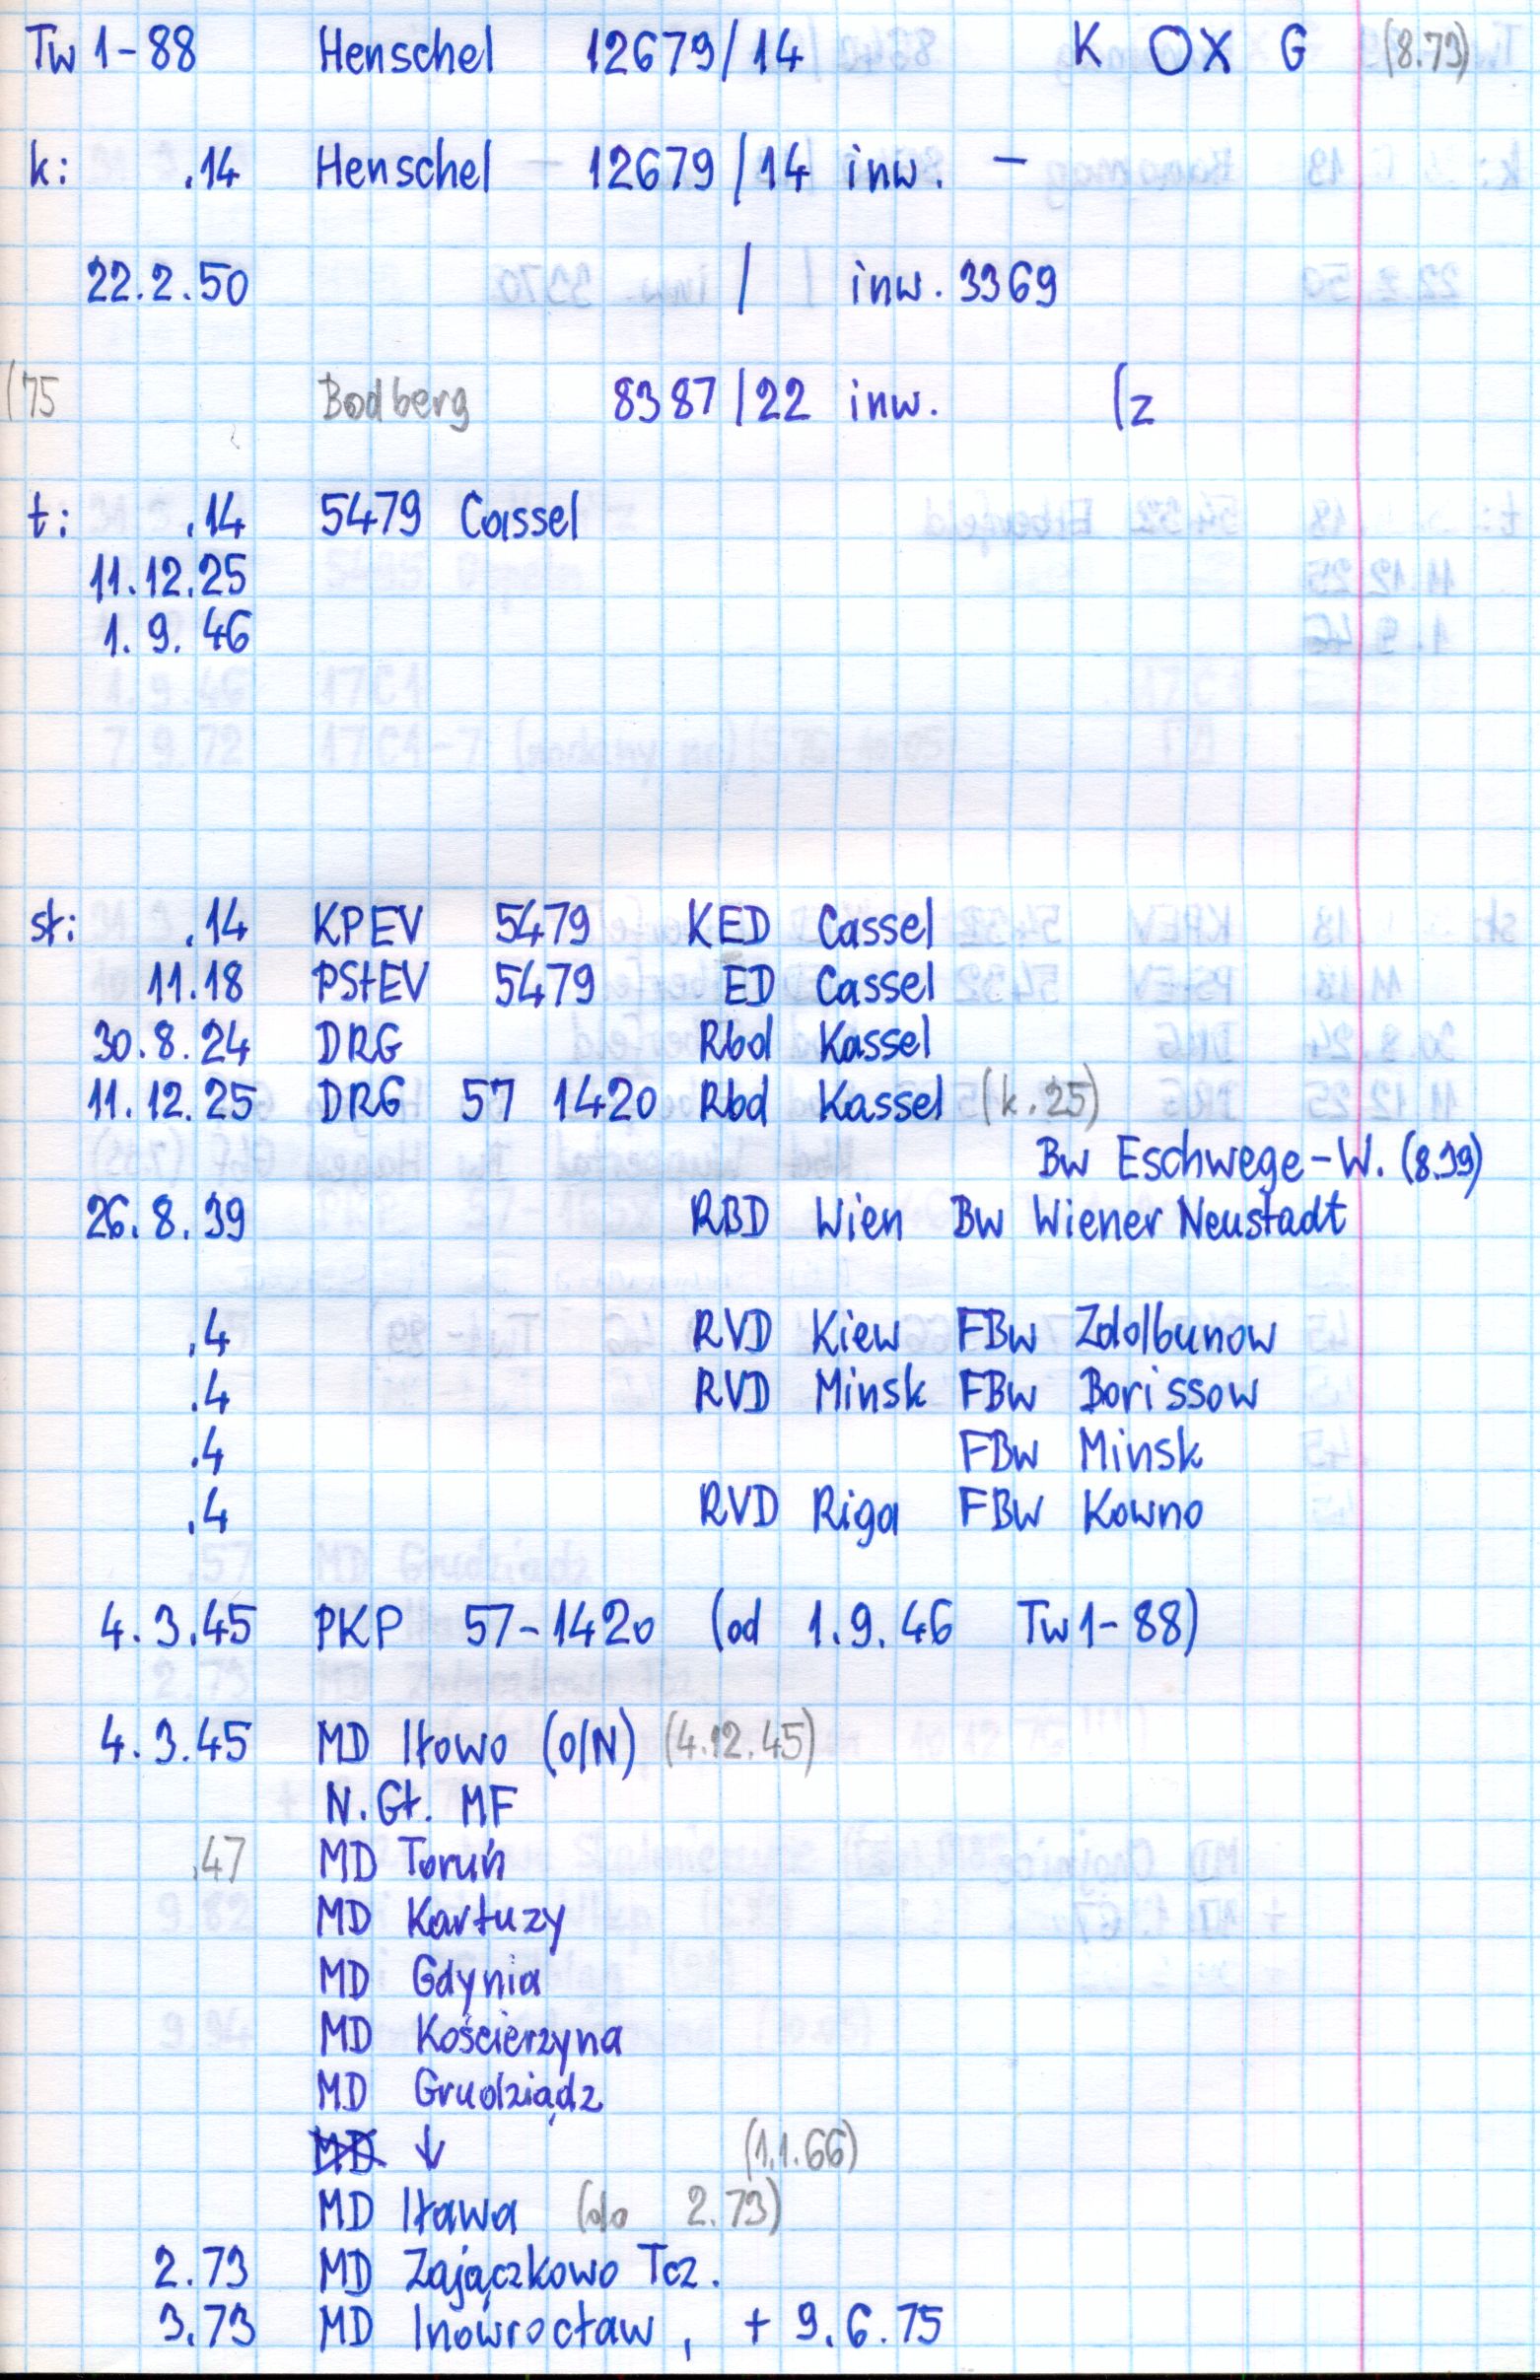 Tw 1-88 Henschel 12679/14 K OX G (8.73)
k: .14 Henschel - 12679/14 inw. -
22.2.50 / inw. 3369
(75 Bodberg 8387/22 inw. (z
t: .14 5479 Cassel
11.12.25
1.9.46
st: .14 KPEV 5479 KED Cassel
11.18 PStEV 5479 ED Cassel
30.8.24 DRG Rbd Kassel
11.12.25 DRG 57 1420 Rbd Kassel (k.25)
Bw Eschwege-W. (8.39)
26.8.39 RBD Wien Bw Wiener Neustadt
.4 RVD Kiew FBw Zdolbunow
.4 RVD Minsk FBw Borissow
.4 FBw Minsk
.4 RVD Riga FBw Kowno
4.3.45 PKP 57-1420 (od 1.9.46 Tw1-88)
4.3.45 MD Iłowo (O/N) (4.12.45)
N.Gł. MF
.47 MD Toruń
MD Kartuzy
MD Gdynia
MD Kościerzyna
MD Grudziądz
MD ↓ (1.1.66)
MD Iława (do 2.73)
2.73 MD Zajączkowo Tcz.
3.73 MD Inowrocław, + 9.6.75